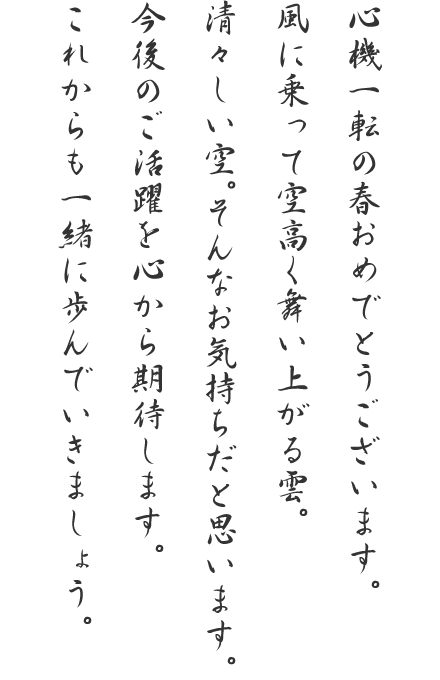 心機一転の春おめでとうございます。
風に乗って空高く舞い上がる雲。
清々しい空。そんなお気持ちだと思います。
今後のご活躍を心から期待します。
これからも一緒に歩んでいきましょう。